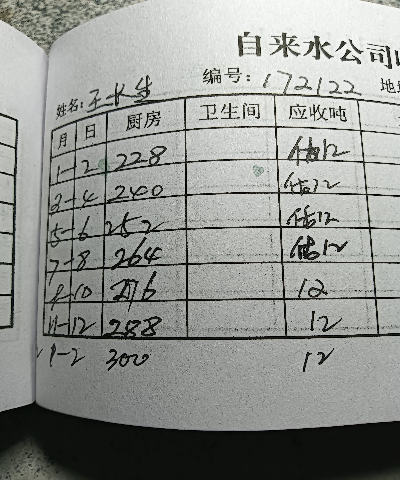 自来水公司
编号: 172122 地
姓名: 王水生
月 日 厨房 卫生间 应收吨
1-2 228 估12
3-4 240 估12
5-6 252 估12
7-8 264 估12
9-10 276 12
11-12 288 12
1-2 300 12